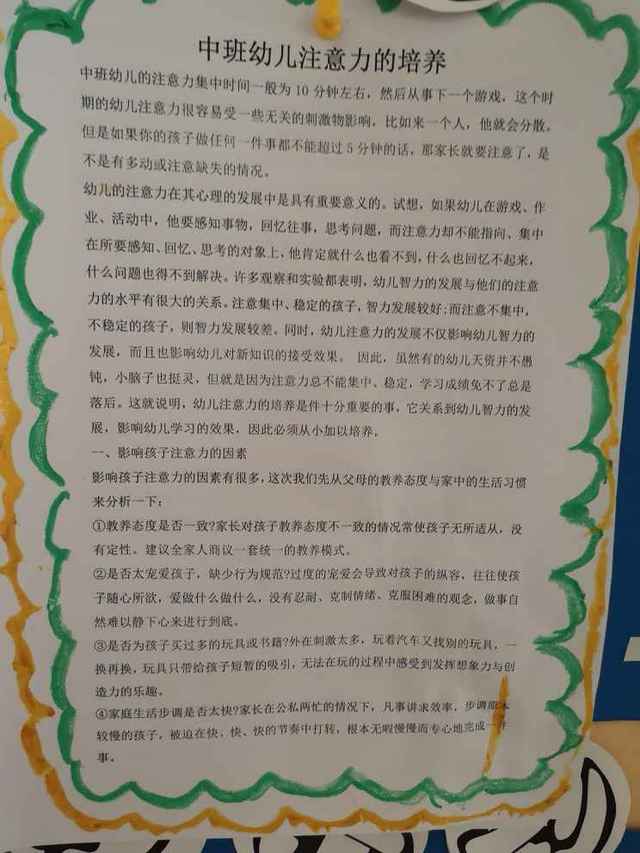 中班幼儿注意力的培养
中班幼儿的注意力集中时间一般为10分钟左右，然后从事下一个游戏，这个时
期的幼儿注意力很容易受一些无关的刺激物影响，比如来一个人，他就会分散。
但是如果你的孩子做任何一件事都不能超过5分钟的话，那家长就要注意了，是
不是有多动或注意缺失的情况。
幼儿的注意力在其心理的发展中是具有重要意义的。试想，如果幼儿在游戏、作
业、活动中，他要感知事物，回忆往事，思考问题，而注意力却不能指向、集中
在所要感知、回忆、思考的对象上，他肯定就什么也看不到，什么也回忆不起来，
什么问题也得不到解决。许多观察和实验都表明，幼儿智力的发展与他们的注意
力的水平有很大的关系。注意集中、稳定的孩子，智力发展较好;而注意不集中，
不稳定的孩子，则智力发展较差。同时，幼儿注意力的发展不仅影响幼儿智力的
发展，而且也影响幼儿对新知识的接受效果。 因此，虽然有的幼儿天资并不愚
钝，小脑子也挺灵，但就是因为注意力总不能集中、稳定，学习成绩免不了总是
落后。这就说明，幼儿注意力的培养是件十分重要的事，它关系到幼儿智力的发
展，影响幼儿学习的效果，因此必须从小加以培养。
一、影响孩子注意力的因素
影响孩子注意力的因素有很多，这次我们先从父母的教养态度与家中的生活习惯
来分析一下：
①教养态度是否一致?家长对孩子教养态度不一致的情况常使孩子无所适从，没
有定性。建议全家人商议一套统一的教养模式。
②是否太宠爱孩子，缺少行为规范?过度的宠爱会导致对孩子的纵容，往往使孩
子随心所欲，爱做什么做什么，没有忍耐、克制情绪、克服困难的观念，做事自
然难以静下心来进行到底。
③是否为孩子买过多的玩具或书籍?外在刺激太多，玩着汽车又找别的玩具，一
换再换，玩具只带给孩子短暂的吸引，无法在玩的过程中感受到发挥想象力与创
造力的乐趣。
④家庭生活步调是否太快?家长在公私两忙的情况下，凡事讲求效率，步调原本
较慢的孩子，被迫在快、快、快的节奏中打转，根本无暇慢慢而专心地完成一件
事。